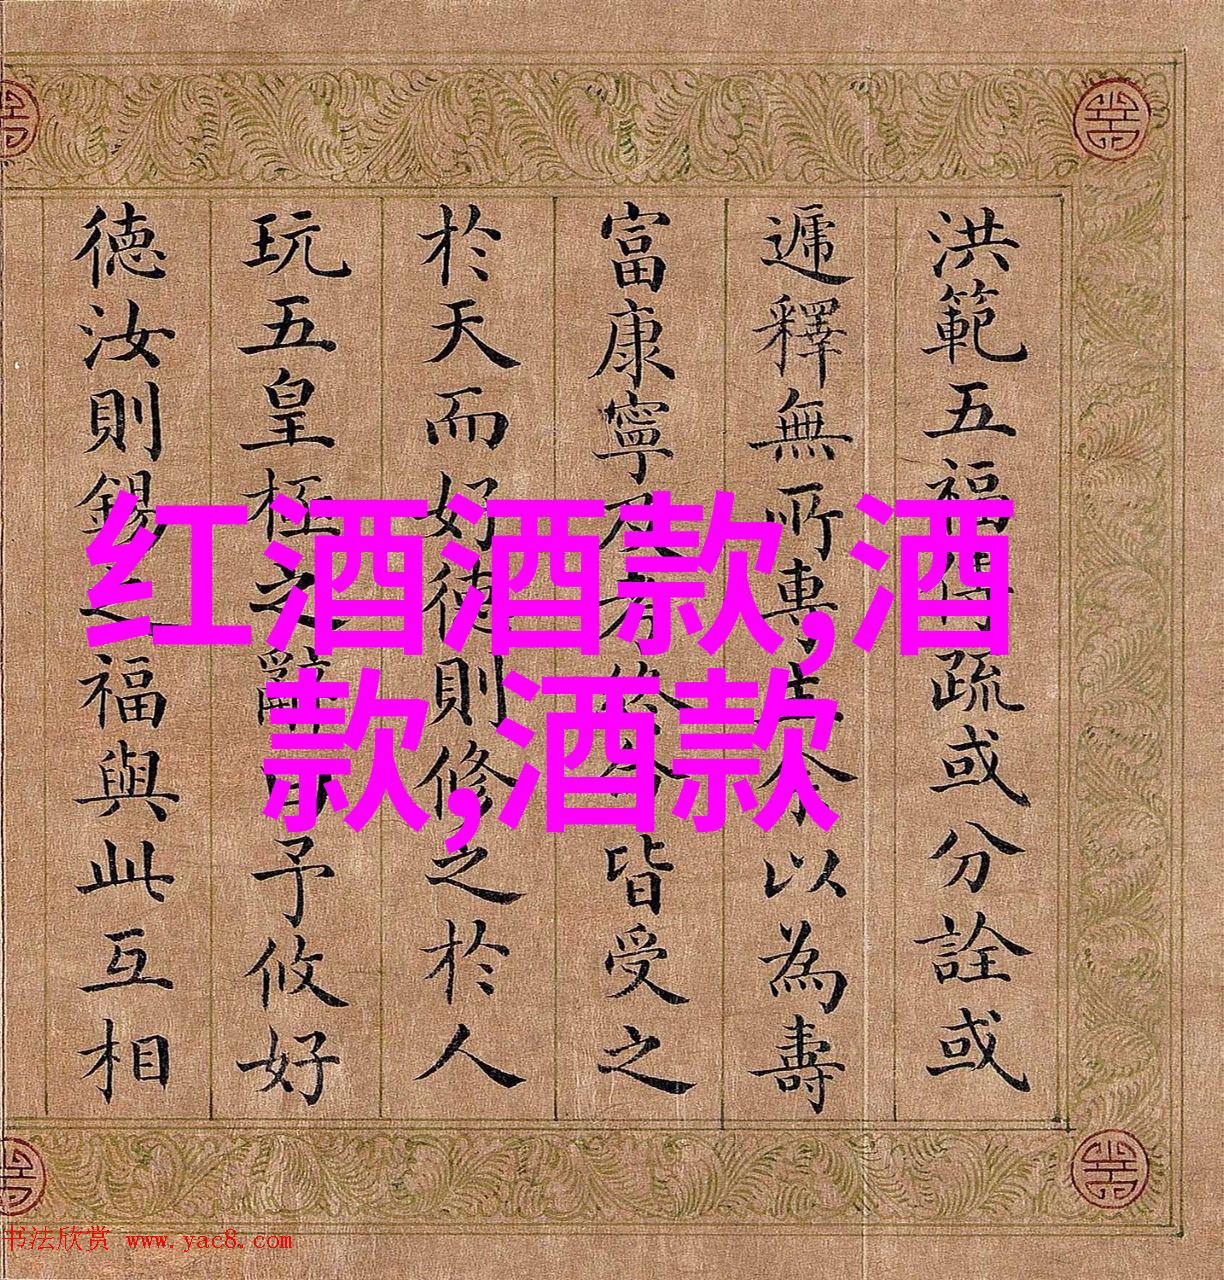 洪範五福得疏或分詮或
遞釋無所專以為壽
富康寧及考終命皆受之
於天而好德則修之於人
玩五皇極之辭曰予攸好
德汝則錫之福與此互相
红酒酒款,酒
款,酒款
书法欣赏 www.yac8.com